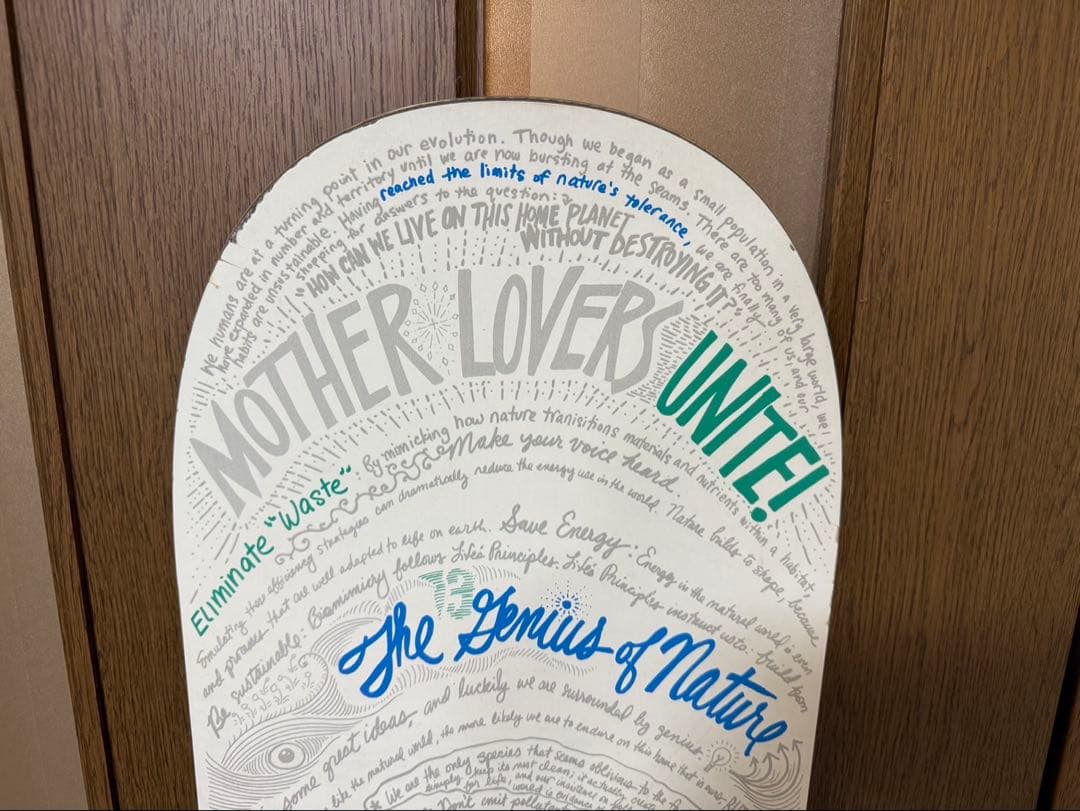 We humans are at a turning point in our evolution. Though we began as a small population in a very large world, we
have expanded in number and territory until we are now bursting at the seams. There are too many of us, and our
habits are unsustainable. Having reached the limits of nature's tolerance, we are finally
"shopping for answers to the question:
"HOW CAN WE LIVE ON THIS HOME PLANET
WITHOUT DESTROYING IT?"
MOTHER LOVERS UNITE!
Eliminate "Waste" By mimicking how nature tranisitions materials and nutrients within a habitat,
Make your voice heard.
Emulating these efficiency strategies can dramatically reduce the energy use in the world. Nature builds to shape, because
and processes that are well adapted to life on earth. Save Energy: Energy in the natural world is even
Be sustainable: Biomimicry follows Life's Principles. Life's Principles instruct us to: build from
13
The Genius of Nature
some great ideas, and luckily we are surrounded by genius.
like the natural world, the more likely we are to endure on this home that is ours,
We are the only species that seems oblivious to the
keep its nest clean; it actually
simply for life, and our
Don't emit